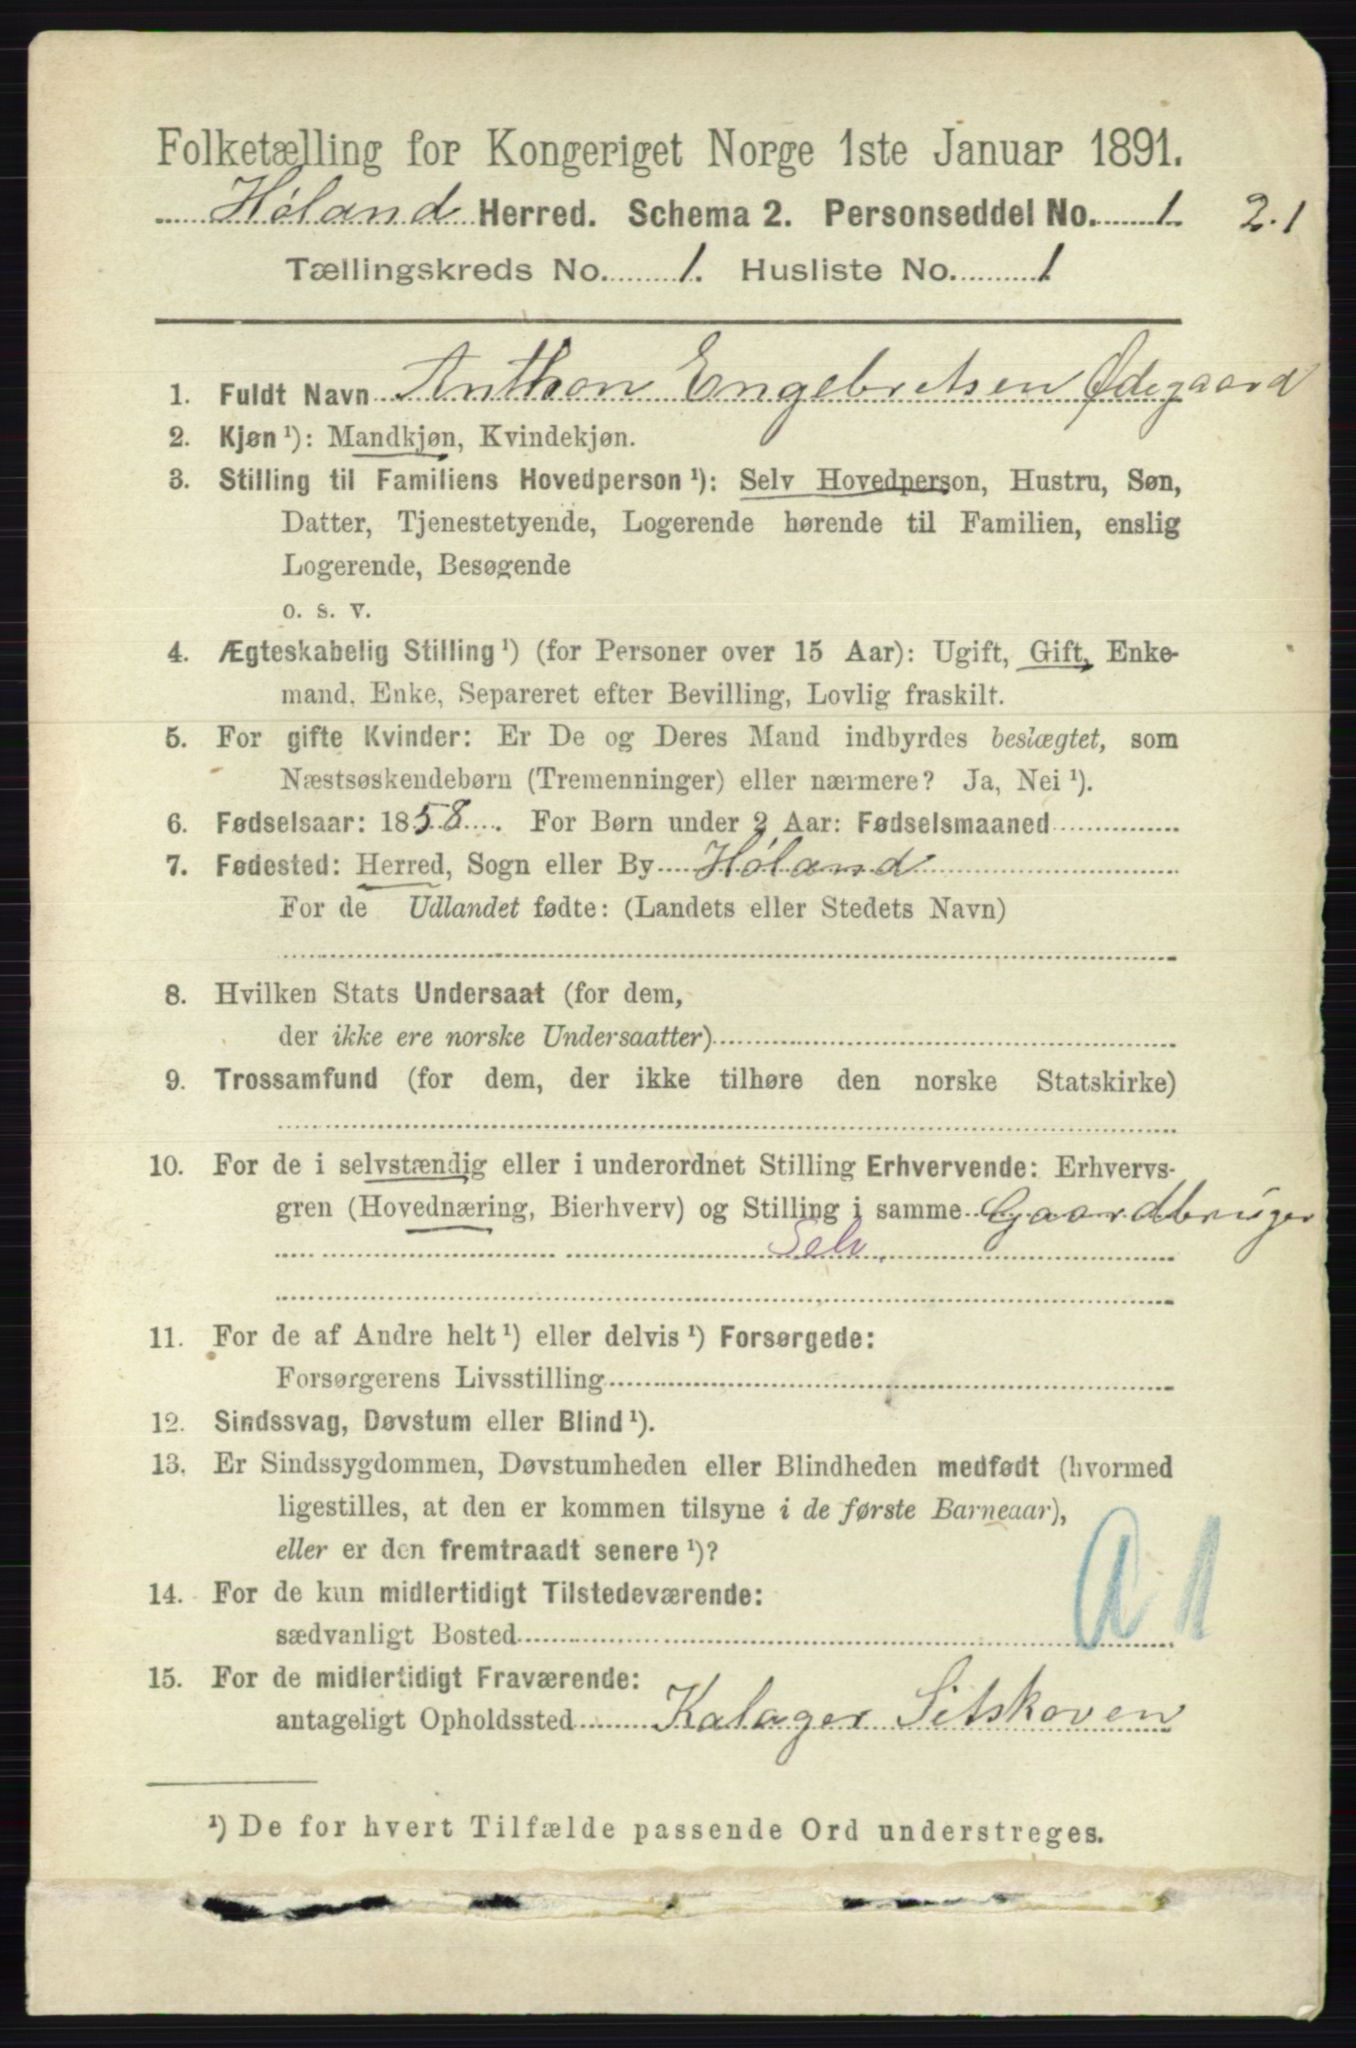 Folketælling for Kongeriget Norge 1ste Januar 1891.
Høland Herred. Schema 2. Personseddel No. 1. 2.1
Tællingskreds No. 1. Husliste No. 1
1. Fuldt Navn Anthon Engebretsen Ødegaard
2. Kjøn ¹): Mandkjøn, Kvindekjøn.
3. Stilling til Familiens Hovedperson ¹): Selv Hovedperson, Hustru, Søn,
Datter, Tjenestetyende, Logerende hørende til Familien, enslig
Logerende, Besøgende
o. s. v.
4. Ægteskabelig Stilling ¹) (for Personer over 15 Aar): Ugift, Gift, Enke-
mand, Enke, Separeret efter Bevilling, Lovlig fraskilt.
5. For gifte Kvinder: Er De og Deres Mand indbyrdes beslægtet, som
Næstsøskendebørn (Tremenninger) eller nærmere? Ja, Nei ¹).
6. Fødselsaar: 1858. For Børn under 2 Aar: Fødselsmaaned
7. Fødested: Herred, Sogn eller By Høland
For de Udlandet fødte: (Landets eller Stedets Navn)
8. Hvilken Stats Undersaat (for dem,
der ikke ere norske Undersaatter)
9. Trossamfund (for dem, der ikke tilhøre den norske Statskirke)
10. For de i selvstændig eller i underordnet Stilling Erhvervende: Erhvervs-
gren (Hovednæring, Bierhverv) og Stilling i samme Gaardbruger
Selv.
11. For de af Andre helt ¹) eller delvis ¹) Forsørgede:
Forsørgerens Livsstilling
12. Sindssvag, Døvstum eller Blind ¹).
13. Er Sindssygdommen, Døvstumheden eller Blindheden medfødt (hvormed
ligestilles, at den er kommen tilsyne i de første Barneaar),
eller er den fremtraadt senere ¹)?
14. For de kun midlertidigt Tilstedeværende:
sædvanligt Bosted
A 1
15. For de midlertidigt Fraværende:
antageligt Opholdssted Kalager Sitskoven
¹) De for hvert Tilfælde passende Ord understreges.